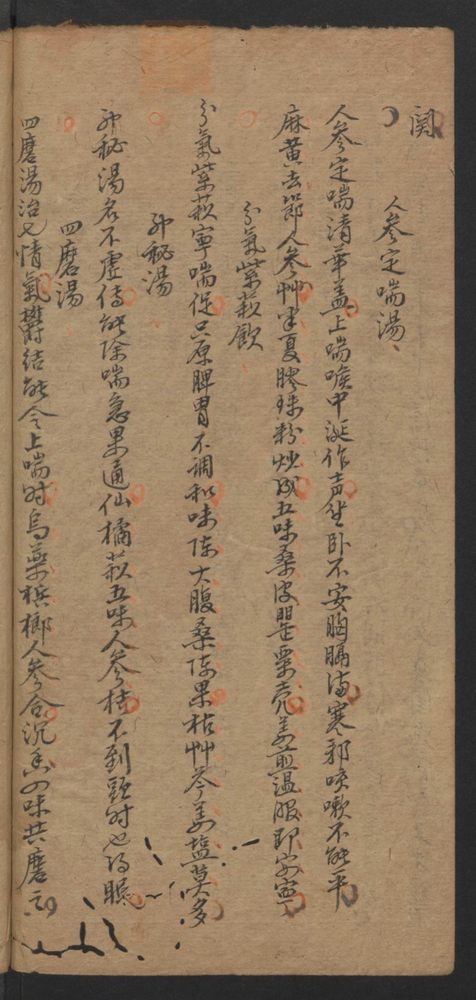 関
人参定喘湯
人参定喘清華盖上喘喉中涎作声坐卧不安胸膈満寒邪咳嗽不能平
麻黄去節人参艸半夏膠珠粉炒成五味桑皮罌粟壳姜煎温服即安寧
分氣紫蘇飲
分氣紫蘇寧喘促只原脾胃不調和味陈大腹桑陈果桔艸苓姜塩莫多
神秘湯
神秘湯名不虚傳能除喘急果通仙橘蘇五味人参桔不到頭时也得眠
四磨湯
四磨湯治七情氣欝结能令上喘时烏藥槟榔人参合沉香四味共磨之